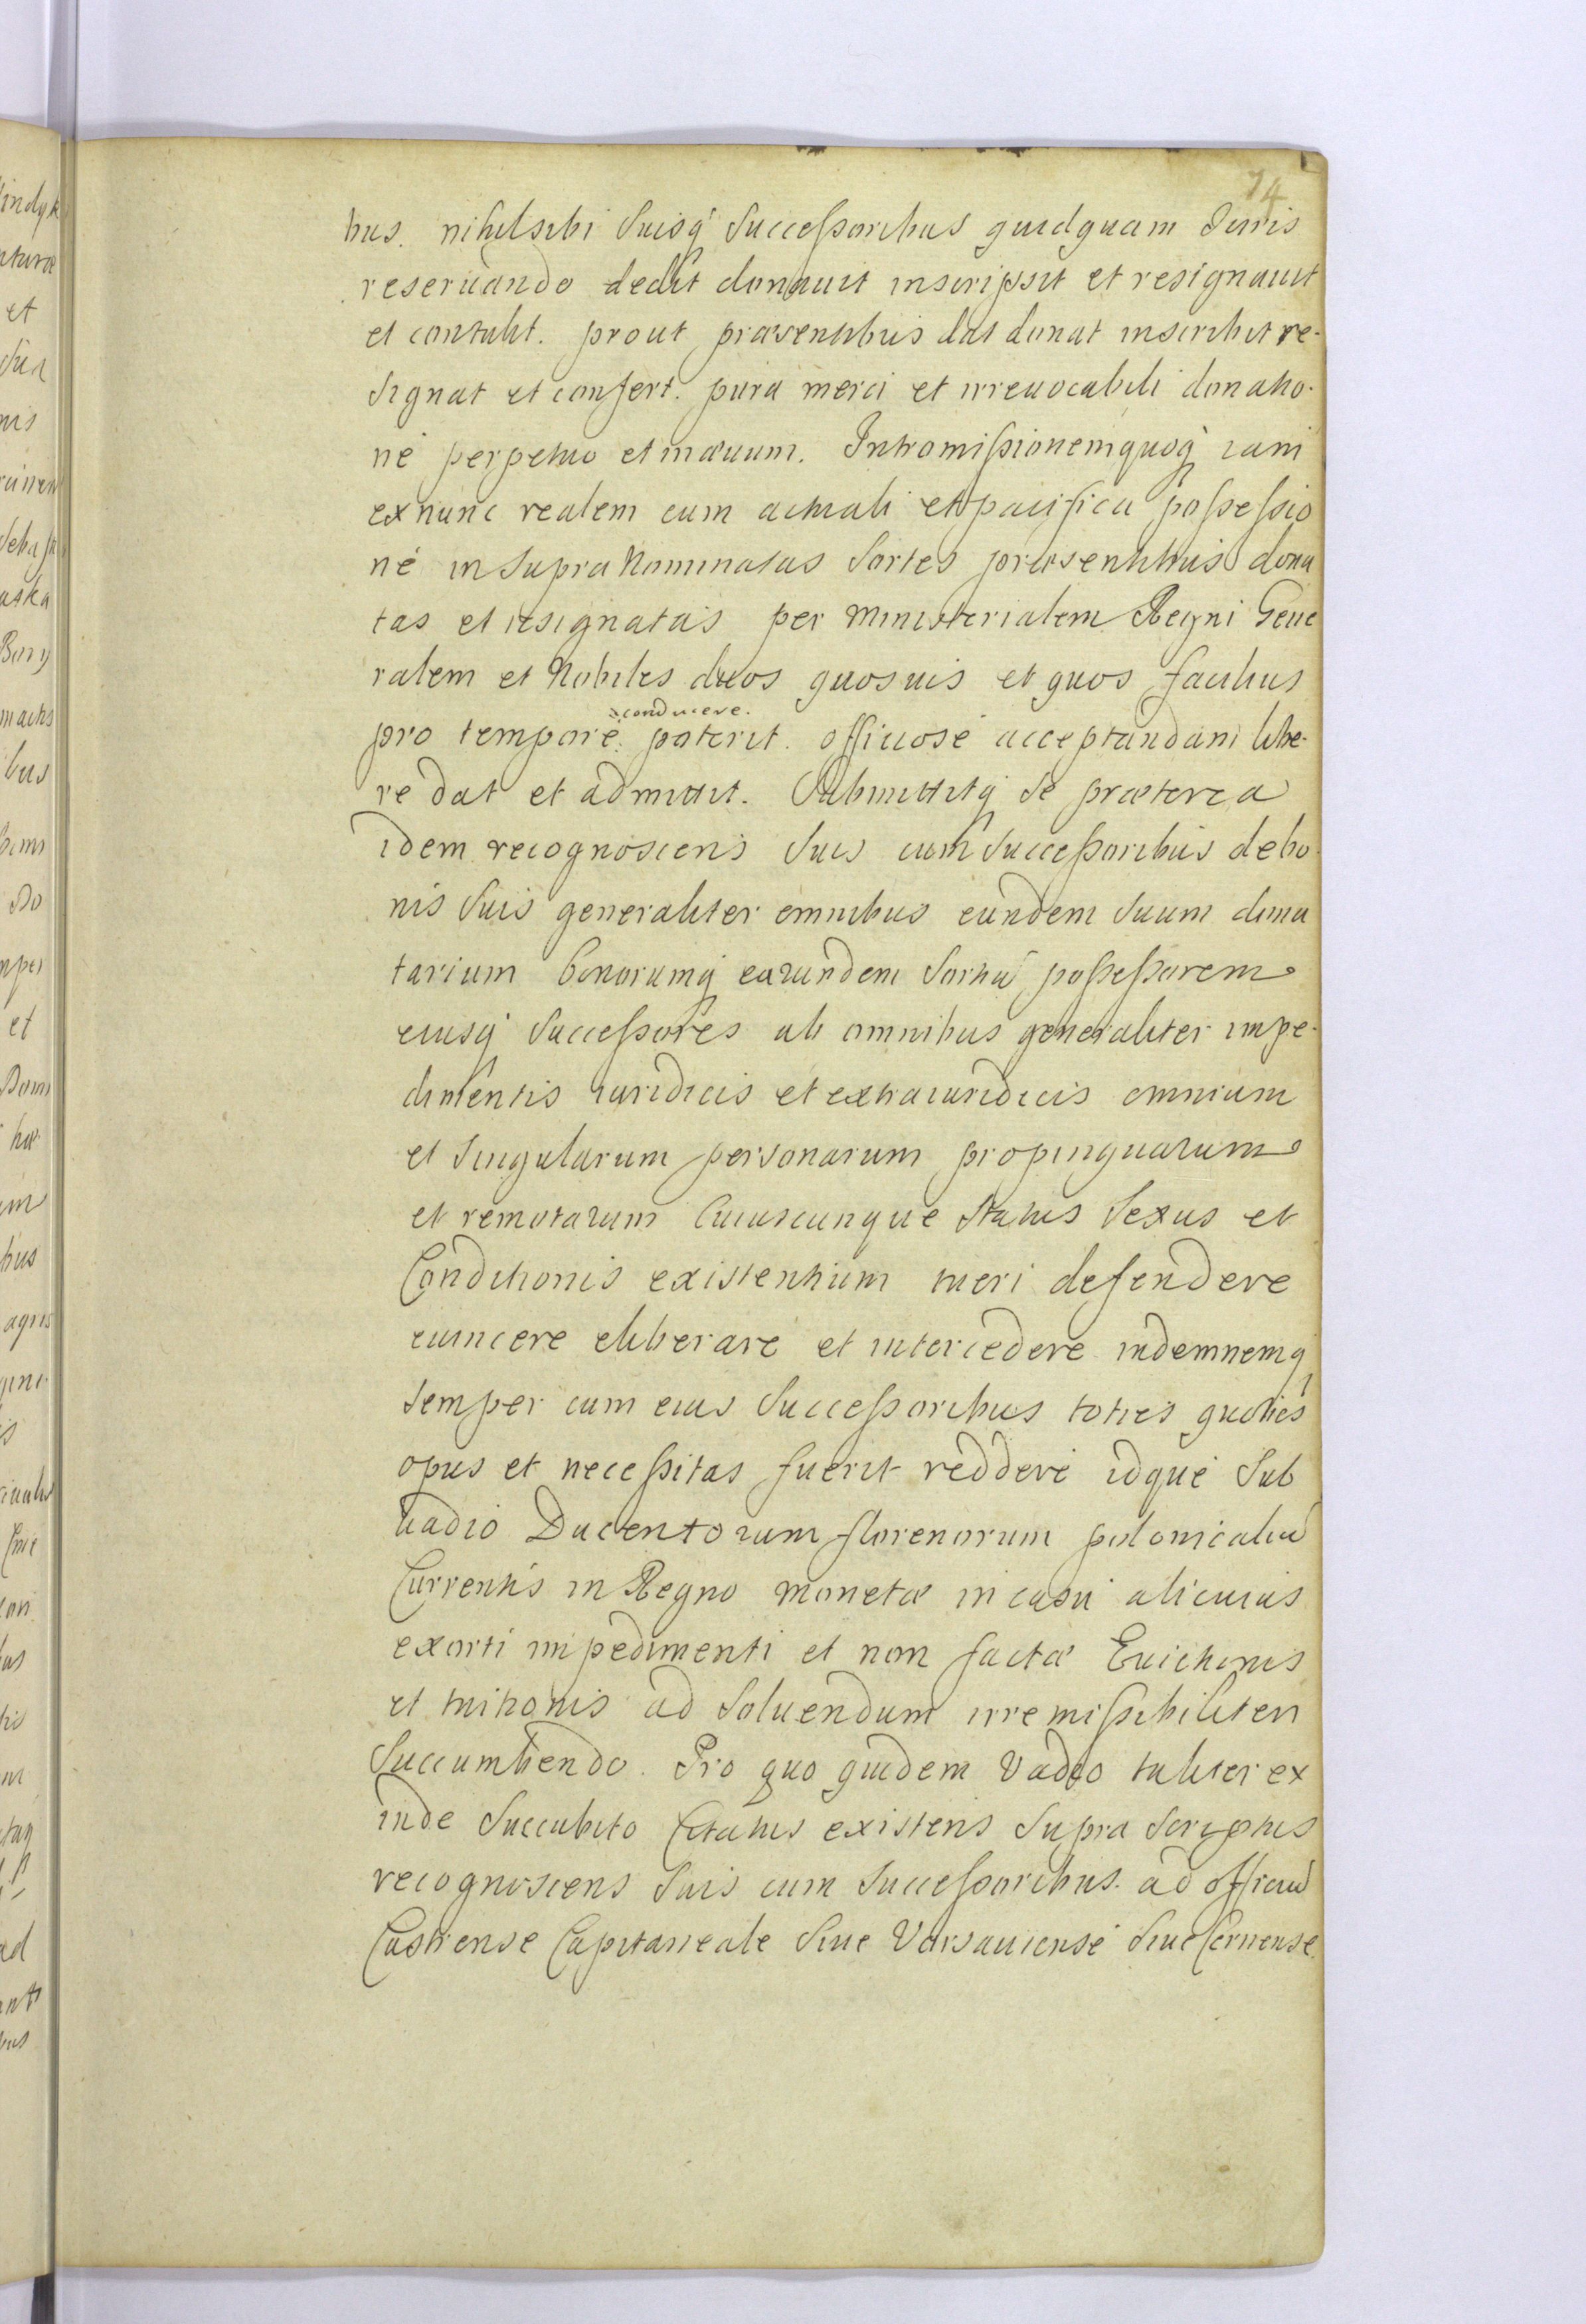 74
bus. nihil sibi Suisq Successoribus quidquam Juris
reseruando dedit donauit inscripsit et resignauit
et contulit. prout præsentibus dat donat inscribit re-
signat et confert. pura meraci et irreuocabili donatio-
ne perpetuo et in æuum. Intromissionemquoq iam
ex nunc realem cum actuali et pacifica possessio
ne in supra Nominatas Sortes præsentibus dona
tas et resignatas per Ministerialem Regni Gene
ralem et Nobiles duos quosuis et quos facilius
conducere.
pro tempore poterit. officiose acceptandam libe-
re dat et admittit. Submittitq se præterea
idem recognoscens suis cum Successoribus de bo
nis Suis generaliter omnibus eundem Suum dona
tarium bonorumq earundem Sortiu possessorem
eiusq Successores ab omnibus generaliter impe-
dimentis iuridicis et extraiuridicis omnium
et singularum personarum propinquarum
et remotarum Cuiuscunque Status Sexus et
Conditionis existentium tueri defendere
euincere eliberare et intercedere indemnemq
semper cum eius Successoribus toties quoties
opus et necessitas fuerit reddere idque Sub
Vadio Ducentorum florenorum polonicaliu
Currentis in Regno monetæ in casu alicuius
exorti impedimenti et non factæ Euictionis
et tuitionis ad Soluendum irremissibiliter
Succumbendo. Pro quo quidem Vadio taliter ex
inde Succubito Citatus existens Supra Scriptus
recognoscens Suis cum Successoribus. ad officiu
Castrense Capitaneale Siue Varsauiense siue Cernense